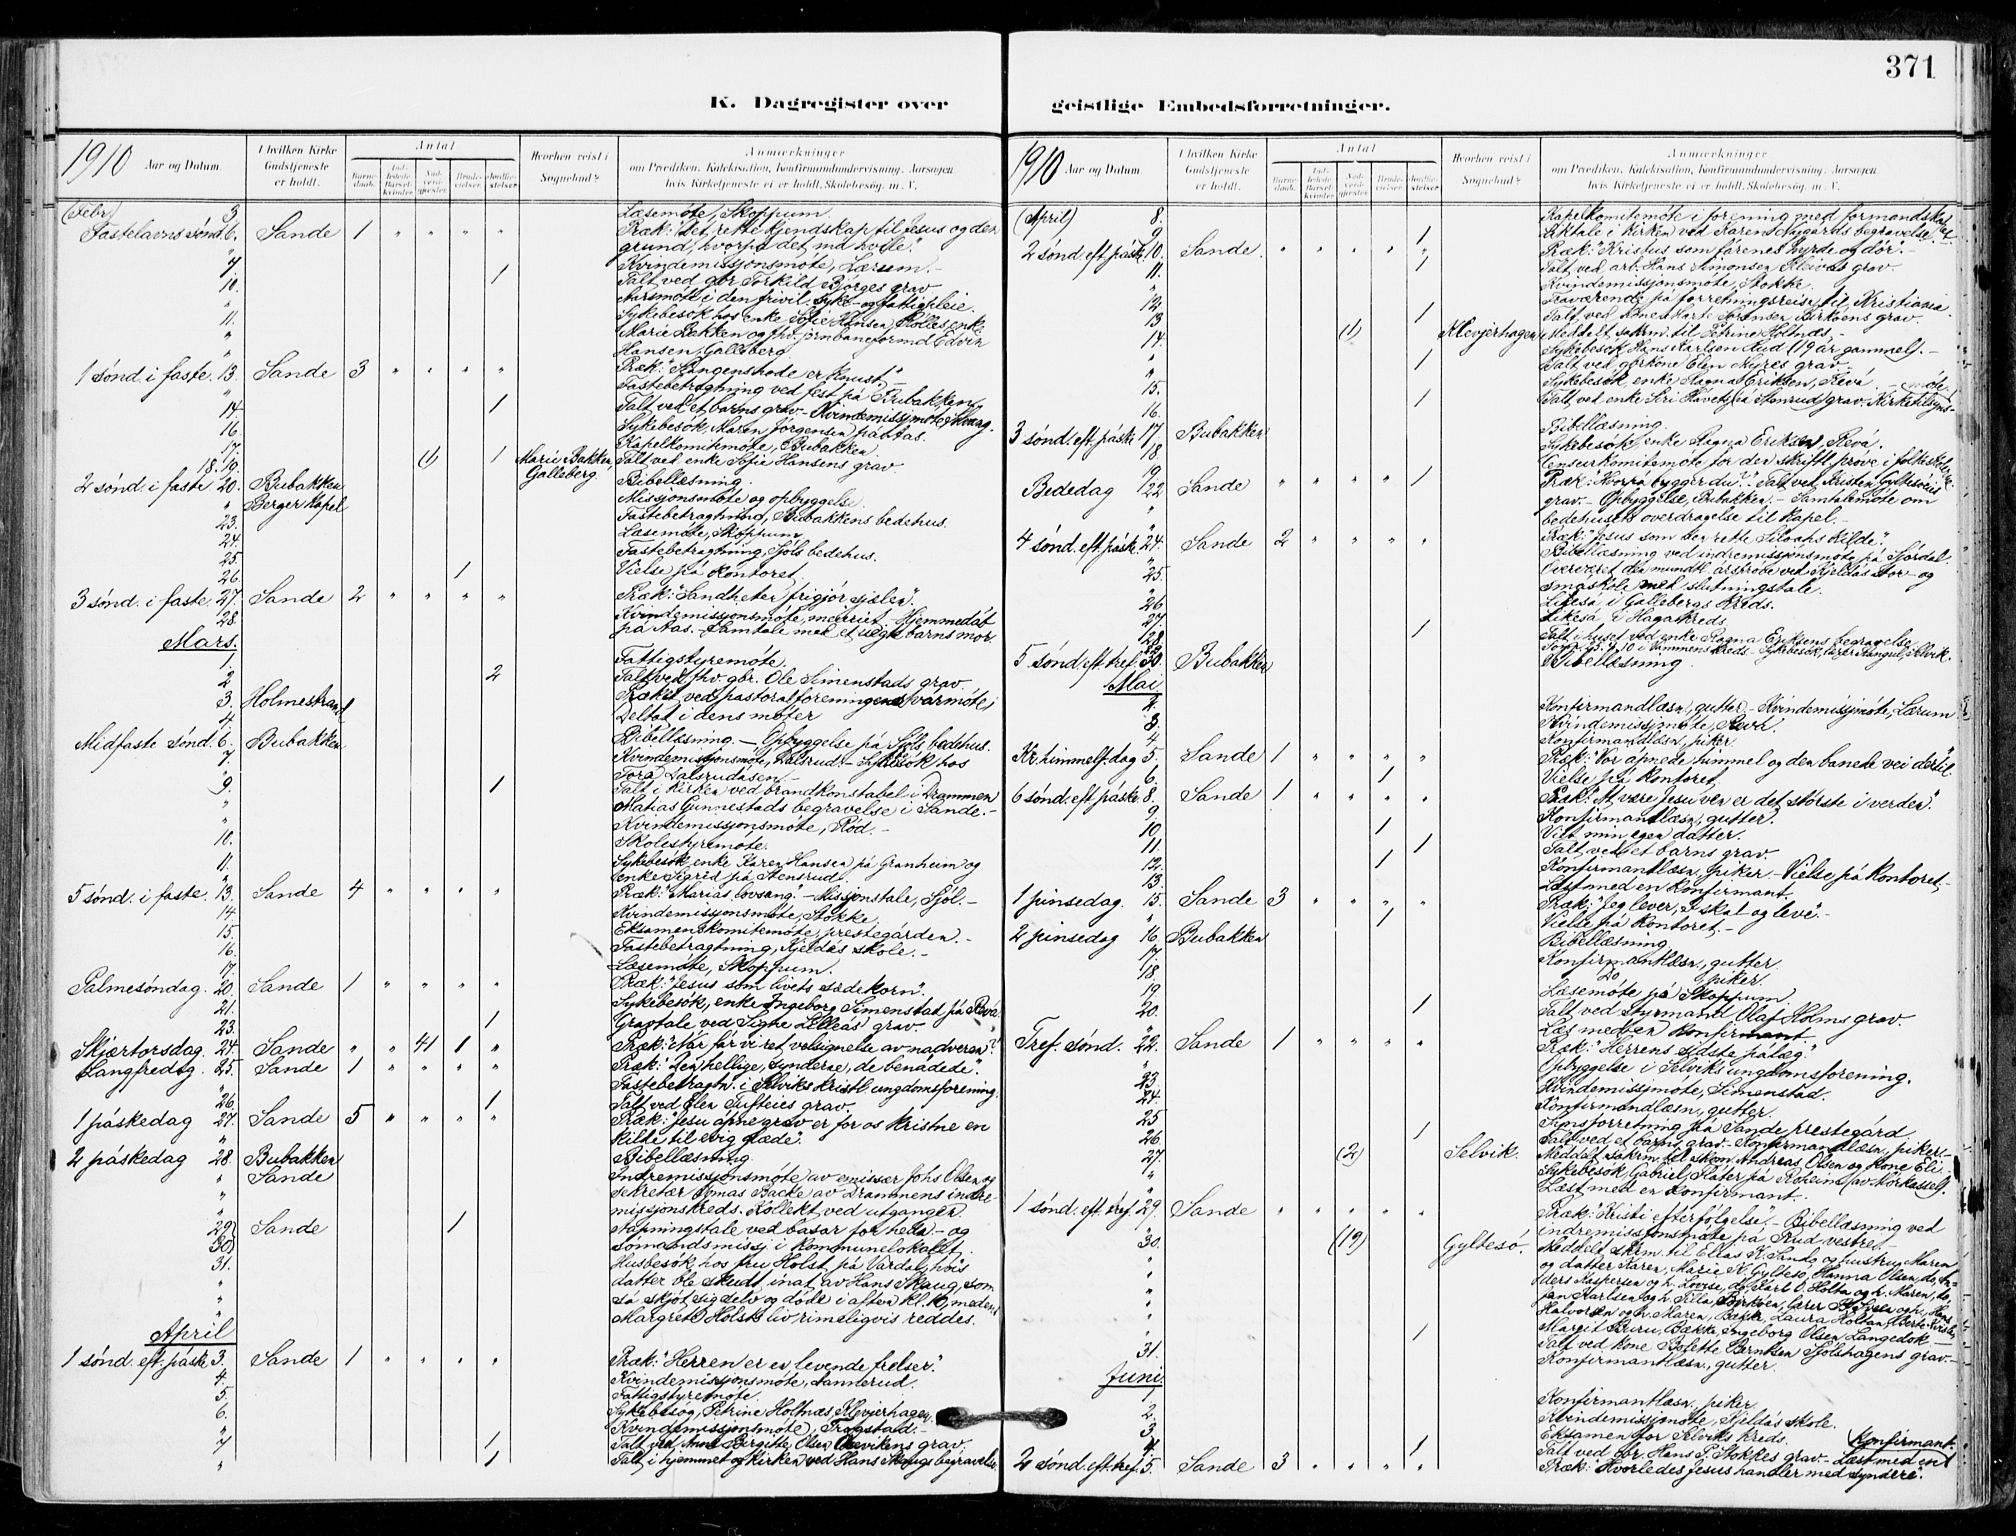 371
K. Dagregister over
geistlige Embedsforretninger.
1910 Aar og Datum.
I hvilken Kirke Gudstjeneste er holdt.
Antal
Barnedaab.
Indledede Barselkvinder
Nadverdgjester
Brudevielser
Jordfæstelser
Hvorhen reist i Sognebud?
Anmærkninger
om Prædiken, Katekisation, Konfirmandundervisning, Aarsagen hvis Kirketjeneste ei er holdt, Skolebesøg, m. V.
(Febr.) 3. Læsemøte, Skoppum.
Fastelavns Sønd. 6. Sande 1 " " " " Præk: "Det rette kjendskap til Jesus og den
grund, hvorpå det må hvile".
7. Kvindemissjonsmøte, Lærum.
10. 1 Talt ved gbr. Torkild Bjørges grav
" Aarsmøte i den frivil. syke- og fattigpleie.
11. Sykebesøk hos enke Sofie Hansen,
" Marie Bakken og fhv. jernbaneformd Edvin
" Hansen, Galleberg
1 sønd. i faste. 13. Sande 3 " " " " Præk: "Slangens hode er knust"
" Fastebetragtning ved fest på Bubakken
14. 1 Talt ved et barns grav. Kvindemissjmøte,
16. Sykebesøk, Maren Jørgensen på Aas.
17. Kapelkomitemøte, Bubakken.
18. 19. (1) 1 Marie Bakken, Galleberg. Talt ved enke Sofie Hansens grav
2 sønd. i faste. 20. Bubakken Bibellæsning.
" Berger Kapel Missjonsmøte og opbyggelse.
23. Fastebetragtning, Bubakkens bedehus.
24. Læsemøte, Skoppum
25. Fastebetragtning, Sjøls bedehus.
26. 1 Vielse på kontoret.
3 sønd. i faste. 27. Sande 2 " " " " Præk: "Sandheten frigjør sjælen".
28. Kvindemissjonsmøte, meieriet. Hjemmedåb
Mars. på Aas. Samtale med et uegte barns mor.
1. Fattigstyremøte.
2 2 Talt ved fhv. gbr. Ole Simenstads grav.
3. Holmestrand Præket ved pastoralforeningens vårmøte i
4. Deltat i dens møter
Midfaste Sønd. 6. Bubakken Bibellæsning. — Opbyggelse på Sjøls bedehus.
7. Kvindemissjonsmøte, Dalsrud. — Sykebesøk hos
" Tora Dalsrudåsen.
9. 1 Talt i kirken ved brandkonstabel i Drammen
" Matias Gunnestads begravelse i Sande.
" Kvindemissjonsmøte, Rød.
10. Skolestyremøte.
11. Sykebesøk, enke Karen Hansen på Granheim og
" enke Sigrid på Stensrud.
5 sønd. i faste. 13. Sande 4 " " " " Præk: "Marias lovsang". — Missjonstale, Sjøl.
14. Kvindemissjonsmøte, Stokke.
15. Eksamenskomitemøte, prestegården.
16. Fastebetragtning, Kjeldås skole.
17. Læsemøte, Skoppum.
Palmesøndag. 20. Sande 1 " " " " Præk: "Jesus som livets sædekorn".
21. Sykebesøk, enke Ingeborg Simenstad på Revå.
23. 1 Gravtale ved Signe Lilleås grav.
Skjærtorsdag. 24. Sande " " 41 1 " Præk: "Når får vi ret velsignelse av nadveren?"
Langfredag. 25. Sande 1 " " " " Præk: "Den hellige, synderne, de benådede".
" Fastebetragtn. i Selviks kristl. ungdomsforening.
26. 1 Talt ved Elen Tufteies grav.
1 påskedag 27. Sande 5 " " " " Præk: "Jesu åpne grav er for os kristne en
" kilde til evig glæde".
2 påskedag 28. Bubakken Bibellæsning.
" Sande Indremissjonsmøte av emissær Johs Olsen og
" sekretær Jonas Backe av Drammens indre-
" missjonskreds. Kollekt ved utgangen.
29. Sande 1 Aapningstale ved basar for hedn.- og
30. sømandsmissj. i kommunelokalet.
31. Husbesøk hos fru Holst på Vårdal, hvis
" datter ble skudt inat av Hans Skaug, som
" så skjøt sig selv og døde i aften kl. 10, medens
" Margrete Holsts liv rimeligvis reddes.
April
1 sønd. eft. påske 3. Sande 1 " " " " Præk: "Herren er en levende frelser".
4. Kvindemissjonsmøte, Sannerud.
5. Fattigstyremøte.
6. Sykebesøg, Petrine Holtnæs, Klevjerhagen.
" Kvindemissjonsmøte, Trogstad.
7. 1 Talt ved Anne Birgitte Olsen grav.
" 1 Talt i hjemmet og kirken ved Hans Skaugs begravelse
1910 Aar og Datum
I hvilken Kirke Gudstjeneste er holdt.
Antal
Barnedaab.
Indledede Barselkvinder
Nadverdgjester
Brudevielser
Jordfæstelser
Hvorhen reist i Sognebud?
Anmærkninger
om Prædiken, Katekisation, Konfirmandundervisning, Aarsagen hvis Kirketjeneste ei er holdt, Skolebesøg, m. V.
(April) 8. Kapelkomitemøte i forening med formandskapet
9. 1 Liktale i kirken ved Karen Nygårds begravelse.
2 sønd. eft. påske 10. Sande. " " " " " Præk: "Kristus som fårenes hyrde og dør".
11. 1 Talt ved arb. Hans Simonsen Kleivas grav.
" Kvindemissjonsmøte, Stokke.
12. Fraværende på forretningsreise til Kristiania.
13 1 Talt ved Anne Marte Sørensen Birkåens grav.
14. (1) Klevjerhagen Meddelt sakrm. til Petrine Holtnæs.
" Sykebesøk, Hans Karlsen Rud (19 år gammel).
" 1 Talt ved gbrkone Elen Myres grav.
15. Sykebesøk enke Magna Eriksen, Revå.
16. 1 Talt ved enke Kri Havet grav. Kirketilsyns-møte.
3 sønd. eft. påske 17. Bubakken Bibellæsning.
18. Sykebesøk, enke Magna Eriksen, Revå.
19. Censurkomitemøte for den skriftl. prøve i folkeskolen.
Bededag 22 Sande " " " " 1 Præk: "Hvorpå bygger du?". Talt ved Kristen
" grav. Opbyggelse, Bubakken. — Samtalemøte om
" bedehusets overdragelse til kapel.
4 sønd. eft. påske 24. Sande 2 " " " " Præk: "Jesus som den rette Siloahs kilde".
" Bibellæsning ved indremissionsmøte på Fjordal.
25. Overværet den mundtl. årsprøve ved Kjeldås stor- og
" småskole med slutningstale.
26 Likeså i Gallebergs kreds.
27. Likeså i Haga kreds.
28. 1 Talt i huset ved enke Magna Eriksens begravelse
5. sønd. eft. 30. Bubakken Bibellæsning
Mai
Konfirmandlæsn., gutter. — Kvindemissjmøte, Lærum
3. Kvindemissjmøte, Revå.
4. Konfirmandlæsn. piker.
Kr. himmelf. dag 5. Sande 1 " " " " Præk: "Vor åpnede himmel og den banede vei dertil".
6. 1 Vielse på kontoret.
6 sønd. eft. påske 8. Sande 1 " " " " Præk: "At være Jesu ven er det største i verden".
9. Konfirmantlæsn., gutter.
10. 1 Viet min egen datter.
11. 1 Talt ved et barns grav.
12. 1 Konfirmantlæsn., piker. — Vielse på kontoret.
13. Læst med en konfirmant.
1 pinsedag. 15. Sande 3 " " " " Præk: "Jeg lever, I skal og leve".
" 1 Vielse på kontoret.
2 pinsedag 16. Bubakken Bibellæsning
17. Konfirmantlæsn., gutter.
18. Do piker.
19. Læsemøte på Skoppum.
20. 1 Talt ved styrmand Olaf Holms grav.
" Læs. med en konfirmant
Tref. sønd. 22. Sande 1 " " " " Præk: "Herrens sidste pålæg".
" Opbyggelse i Selviks ungdomsforening.
23. Kvindemissjmøte, Simenstad.
24. Konfirmandlæsn., gutter.
25 Tingforretning på Sande prestegård
26. 1 Talt ved et barns grav. Konfirmandlæsn., piker.
27. (2) Selvik. Meddelt sakrm. til skom. Andreas Olsen og kone Eli.
" Sykebesøk, Gabriel Flåter på Roheim (av Mørkassel).
" Læst med en konfirmant.
1 sønd. eft. tref. 29. Sande " " " " " Præk: "Kristi efterfølgelse". — Bibellæsning ved
" indremissjonsmøte på Rud vestre.
30. (19) Gyltesø. Meddelt skrm. til Elias K. Sand og hustru Maren
" og datter Karen, Marie K. Gyltesø, Hanna Olsen do, An-
" ders Kaspersen og h. Lovise, do, Karl O. Holtan og h. Maren, do,
" Karlsen og h. Tilla Birkåen, lærer og h., Hans
" Halvorsen og h. Maren, Bække, Laura Holtan, Berte
" Margit Buru, Bække, Ingeborg Olsen Langedok.
31. 1 Talt ved kone Bolette Berntsen Sjølshagens grav.
Konfirmantlæsn., gutter.
Juni
1. Konfirmantlæsn., piker.
2. Kvindemissjonsmøte, Kjeldås skole.
3. Eksamen for Selviks kreds.
4. 1 Talt ved gbr. Hans P. Stokkes grav. Læst med en konfirmant.
2 sønd. eft. tref. 5. Sande 3 " " " " Præk: "Hvorledes Jesus handler med syndere".